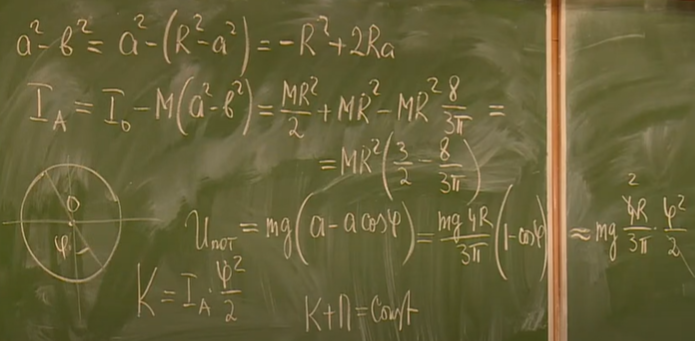 a² - b² = a² - (R² - a²) = -R² + 2Ra
I_A = I_0 - M(a² - b²) = MR²/2 + MR² - MR² 8/3π =
= MR² (3/2 - 8/3π)
0
φ
U_пот = mg(a - a cosφ) = mg 4R/3π (1 - cosφ) ≈ mg 2 4R/3π · φ²/2
K = I_A · φ²/2
K + П = Const